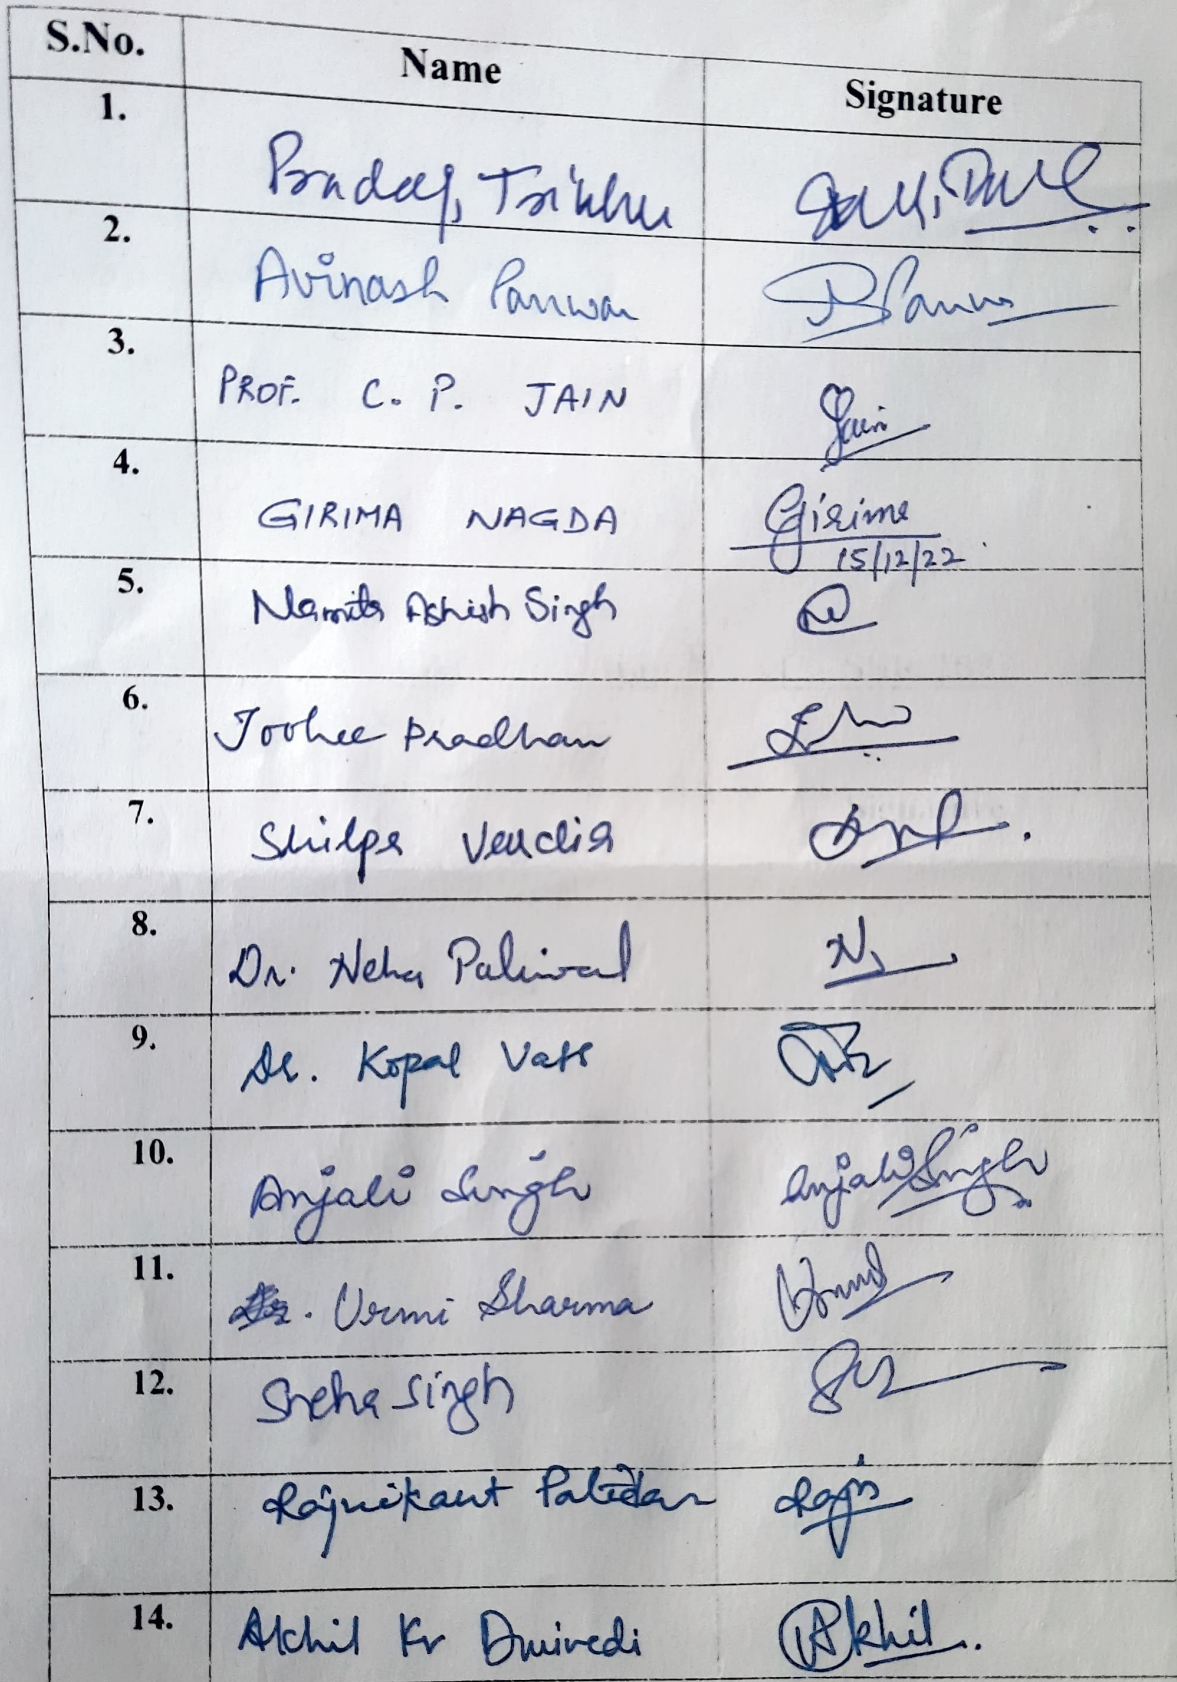 S.No. Name Signature
1. Pradeep Trikha
2. Avinash Panwar Panwar
3. PROF. C. P. JAIN Jain
4. GIRIMA NAGDA Girima
15/12/22
5. Namita Ashish Singh
6. Joohee Pradhan
7. Shilpa Vardia
8. Dr. Neha Paliwal N
9. Dr. Kopal Vats
10. Anjali Singh Anjali Singh
11. Dr. Urmi Sharma
12. Sneha Singh
13. Rajnikant Patidar Raj
14. Akhil Kr Dwivedi Akhil.